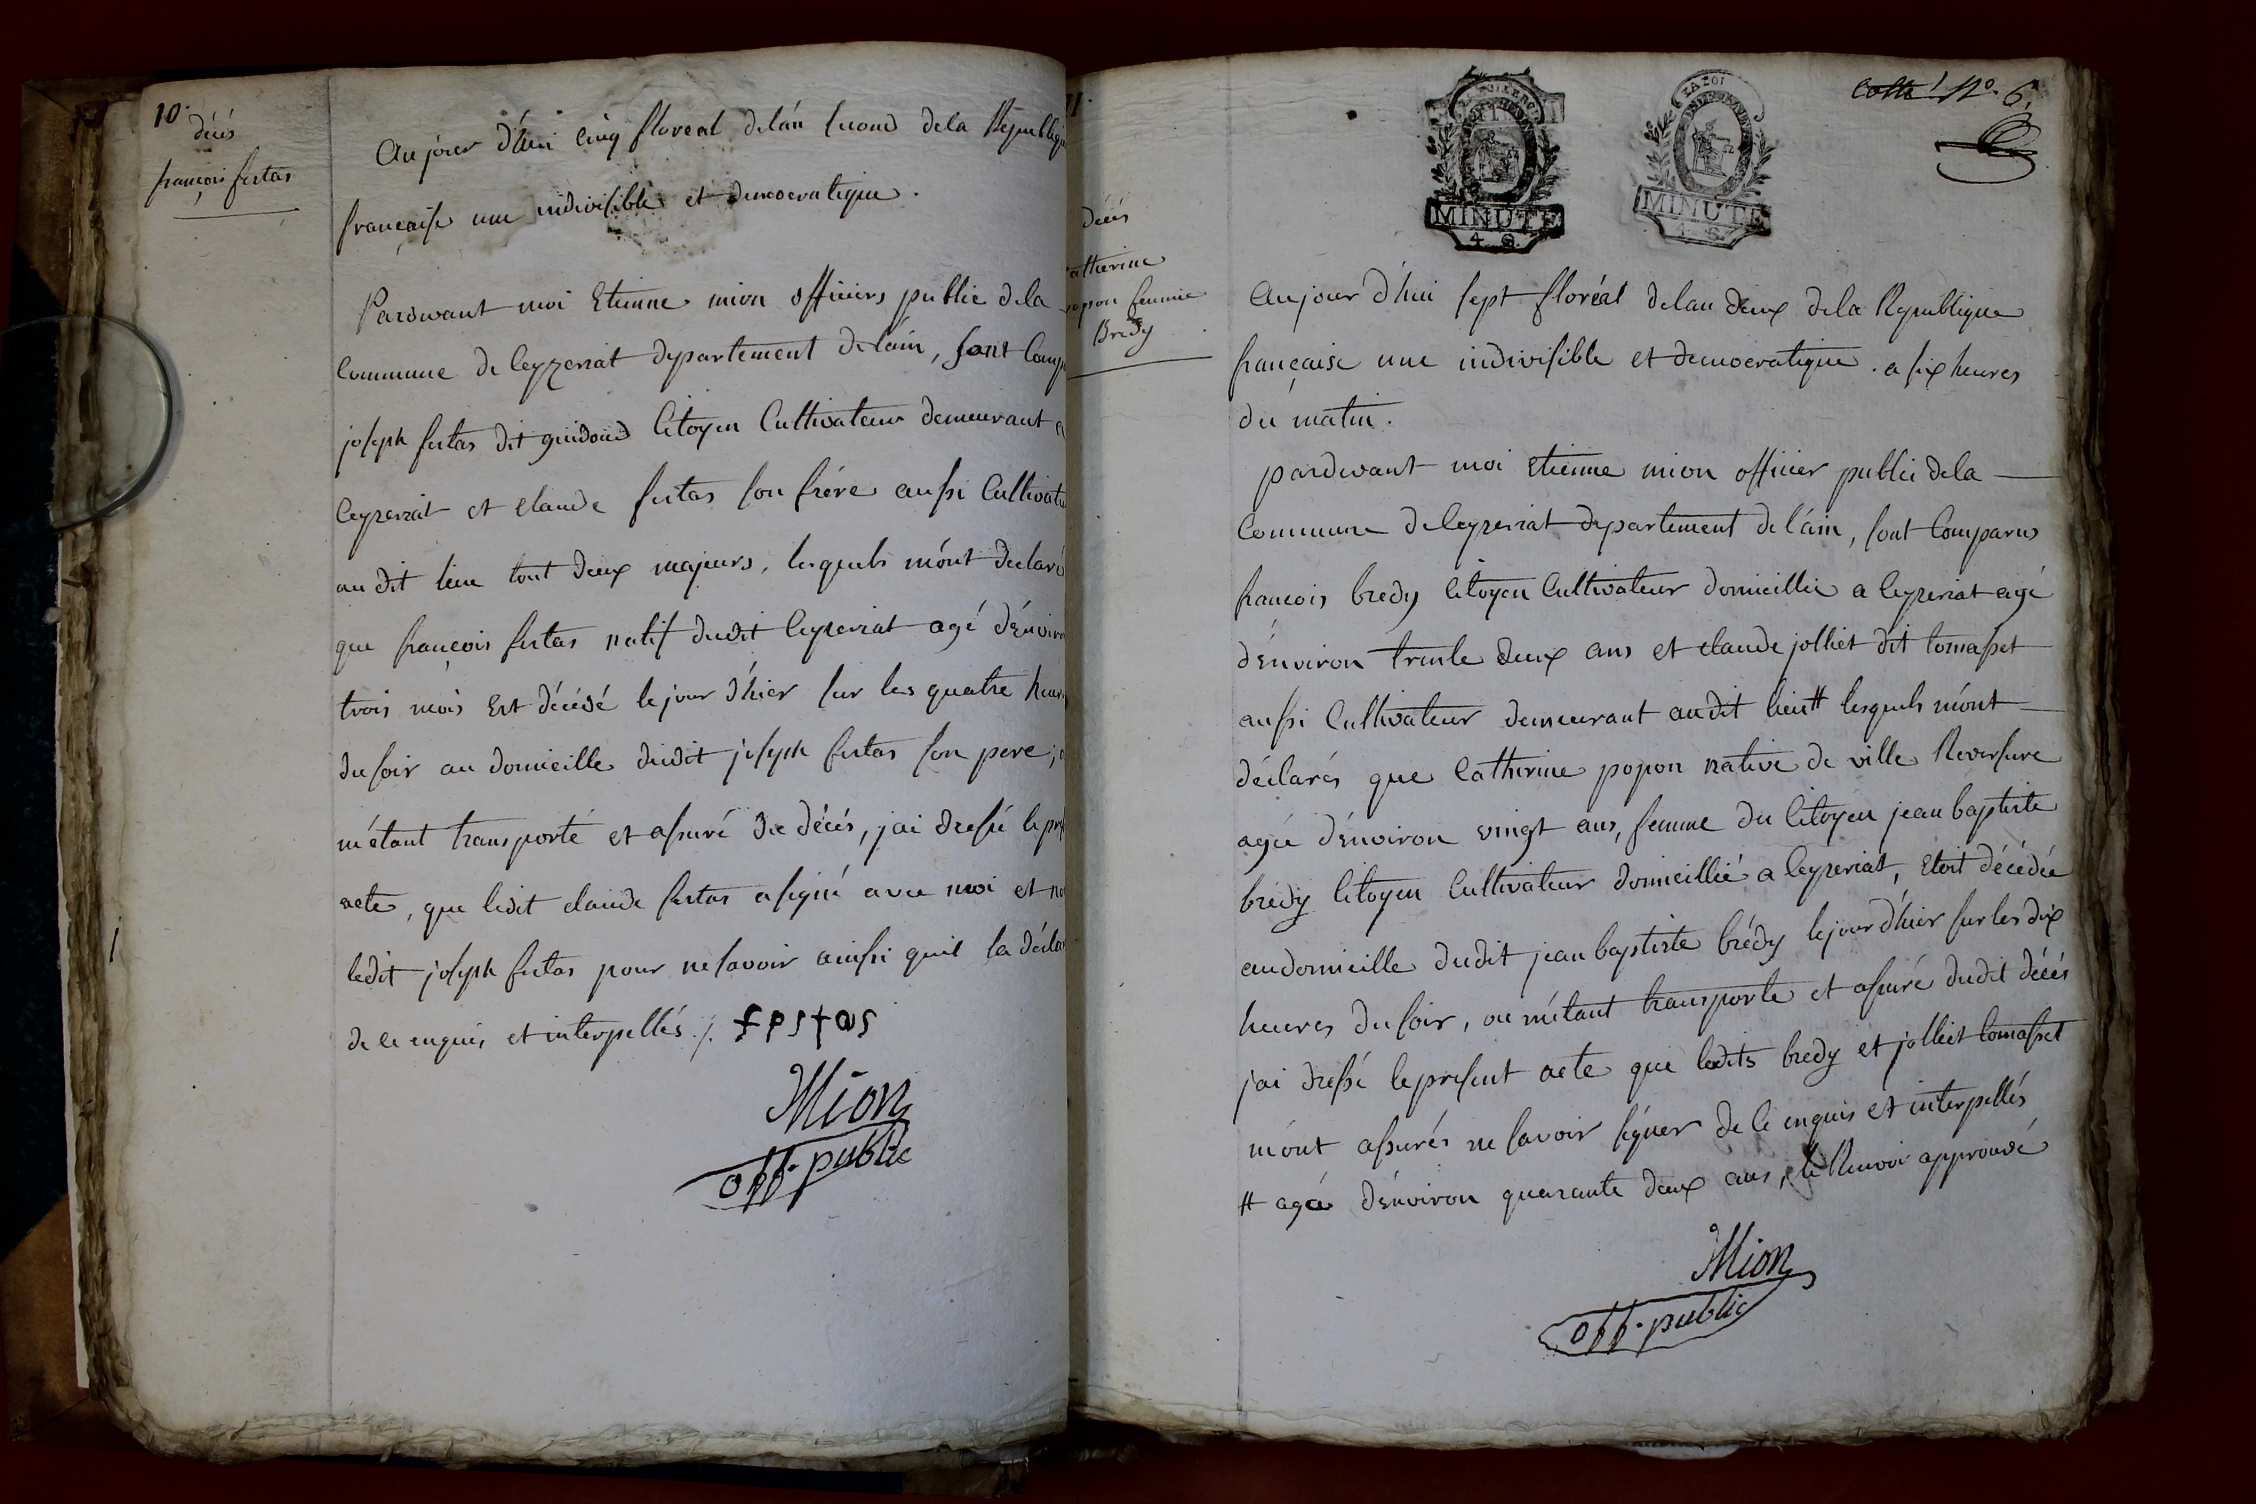 10.
décés
françois festas
Aujour d'hui cinq floreal delán second dela Republiq
française une indivisible et democratique.
Pardevant moi Etienne mion officiers public dela
Commune de Ceyzeriat departement deláin, sont Comp
joseph festas dit guidoud Citoyen Cultivateur demeurant a
Ceyzeriat et claude festas son frére aussi Cultivate
au dit lieu tout deux majeurs, lesquels mónt declaré
que françois festas natif dudit Ceyzeriat agé d'énviro
trois mois Est décédé le jour d'hier sur les quatre heur
du soir au domicille dudit joseph festas son pere;
métant transporté et assuré du décés, jai dressé le pres
acte, que ledit claude festas a signé avec moi et no
ledit joseph festas pour ne savoir ainssi quil la décla
de ce enquis et interpellés ./. festas
Mion
off. public
11.
Cotté N°. 6.
LA LOI
MINUTE
4. S.
MINUTE
4. S.
décés
atherine
popon femme
Bredy
Aujour d'hui sept floréal delan deux dela Republique
française une indivisible et democratique. a six heures
du matin.
pardevant moi Etienne mion officier public dela
Commune de Ceyzeriat departement de láin, sont Comparus
francois bredy Citoyen Cultivateur domicillié a Ceyzeriat agé
d'énviron trente deux ans et claude jolliet dit tomasset
aussi Cultivateur demeurant au dit lieu # lesquels mónt
déclarés que Catherine popon native de ville Reversure
agée d'énviron vingt ans, femme du Citoyen jean baptiste
brédy Citoyen Cultivateur domicillié a Ceyzeriat, Etoit décédée
au domicille dudit jean baptiste brédy le jour d'hier sur les dix
heures du soir, ou métant transporte et assuré dudit décés
jai dréssé le present acte que ledits bredy et jolliet tomasset
mónt assurés ne savoir signer de Ce enquis et interpellés
# agé d'énviron quarante deux ans, le Renvoi approuvé
Mion
off. public